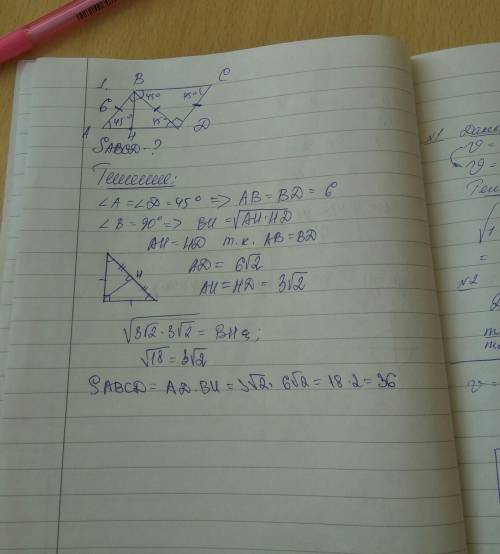 1.
B
C
45°
45°
6
45°
45°
A
H
D
SABCD - ?
Решение:
∠A = ∠D = 45° => AB = BD = 6
∠B = 90° => BH = √AH·HD
AH = HD т.к. AB = BD
AD = 6√2
H
AH = HD = 3√2
√3√2·3√2 = BH
√18 = 3√2
SABCD = AD·BH = 3√2·6√2 = 18·2 = 36
№1
v =
v =
√1
=
№2
v =